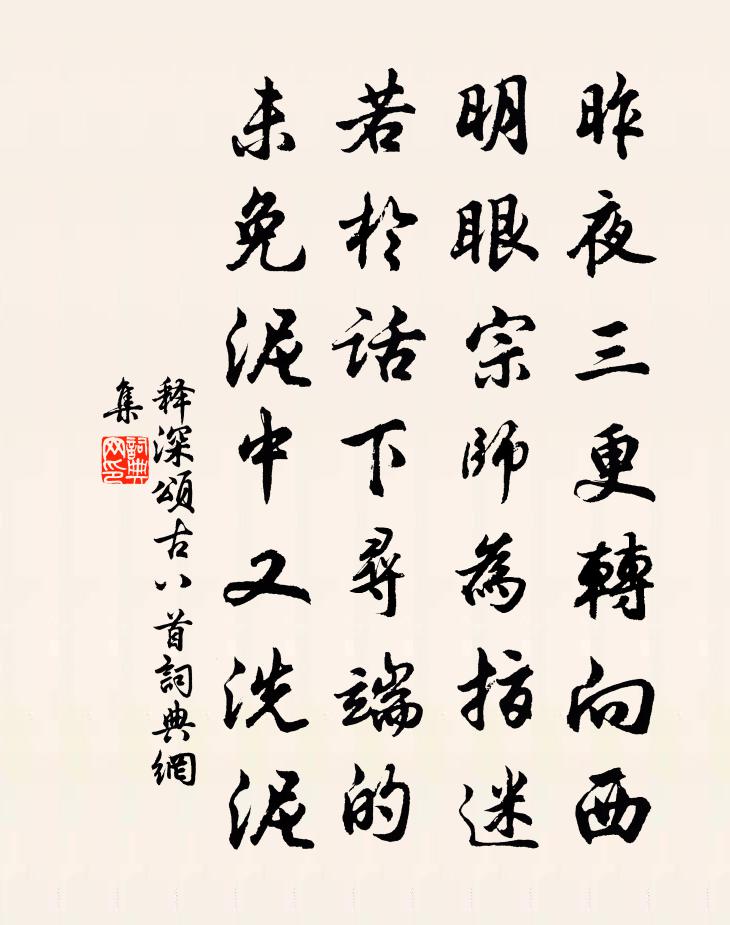 昨夜三更轉向西
明眼宗師為指迷
若於話下尋端的
未免泥中又洗泥
释深頌古八首詞典網
集
詞典網印